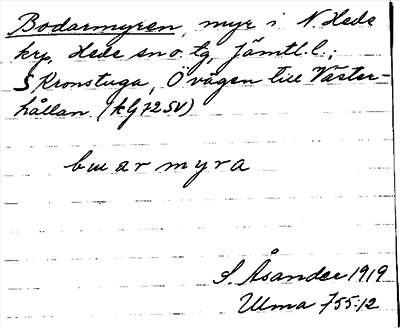 Bodarmyren, myr i N. Hede
krp, Hede sn o. tg, Jämtl. l.;
S Kronstuga, Ö vägen till Väster-
hållan. (kG 72 SV)
buarmyra
S. Åsander 1919
Ulma 755:12